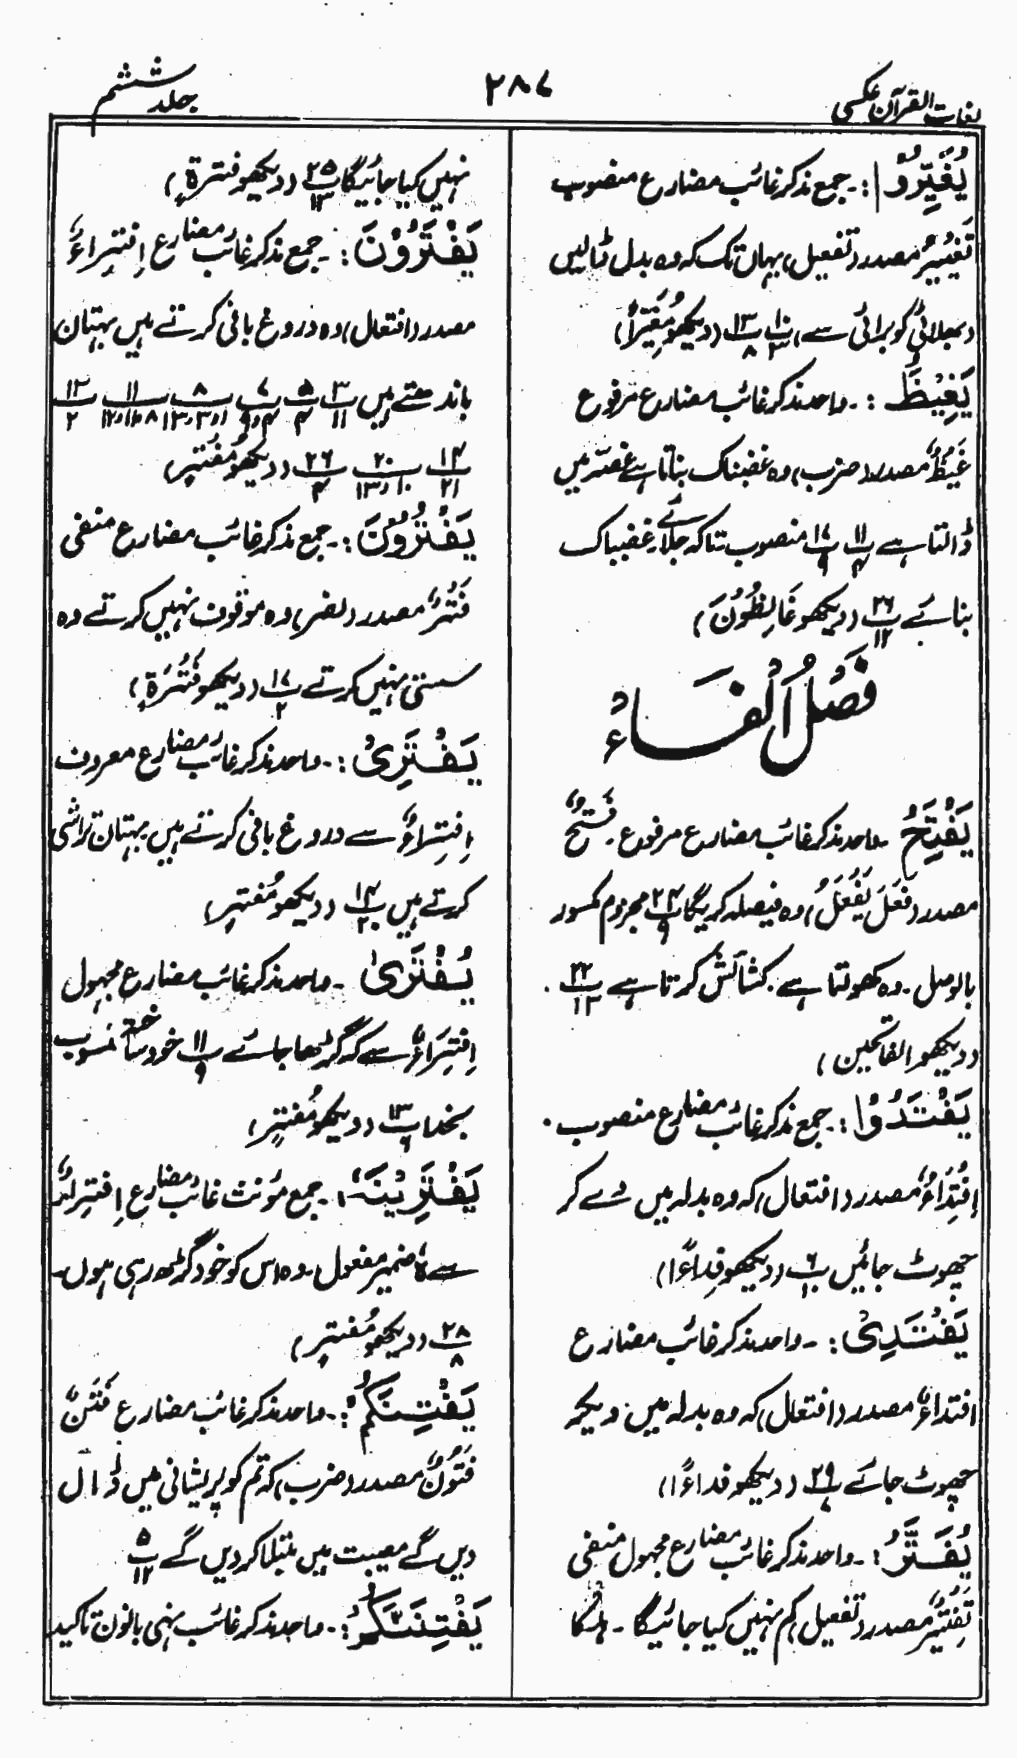 لغات القرآن عکسی
۲۸۷
جلد ششم
یُغَیِّرُوْا :۔ جمع مذکر غائب مضارع منصوب
تَغْیِیْرٌ مصدر (تفعیل) یہاں تک کہ وہ بدل ڈالیں
(بھلائی کو برائی سے) پ۱۰/۳ پ۱۳/۸ (دیکھو مُغَیِّرًا)
یَغِیْظُ :۔ واحد مذکر غائب مضارع مرفوع
غَیْظٌ مصدر (ضرب) وہ غضبناک بناتا ہے غصّہ میں
ڈالتا ہے پ۱۱/۴ پ۱۷/۹ منصوب تاکہ جلائے غضبناک
بنائے پ۲۶/۱۲ (دیکھو غَائِظُوْنَ)
فَصْلُ الْفَاءِ
یَفْتَحُ ۔ واحد مذکر غائب مضارع مرفوع ۔ فَتْحٌ
مصدر (فَعَلَ یَفْعَلُ) وہ فیصلہ کریگا پ۲۲/۹ مجزوم مکسور
بالوصل ۔ وہ کھولتا ہے ۔ کشائش کرتا ہے ۲۲/۱۳ ۔
(دیکھو الفاتحین)
یَفْتَدُوْا :۔ جمع مذکر غائب مضارع منصوب ۔
اِفْتِدَاءٌ مصدر (افتعال) کہ وہ بدلہ میں دے کر
چھوٹ جائیں پ۶/۱۰ (دیکھو فِدَاءً ا)
یَفْتَدِیْ :۔ واحد مذکر غائب مضارع
افتداءٌ مصدر (افتعال) کہ وہ بدلہ میں دیکر
چھوٹ جائے پ۲۹/۷ (دیکھو فداءً ا)
یُفَتَّرُ :۔ واحد مذکر غائب مضارع مجہول منفی
تَفْتِیْرٌ مصدر (تفعیل) کم نہیں کیا جائیگا ۔ ہلکا
نہیں کیا جائیگا پ۲۵/۱۳ (دیکھو فترۃٍ)
یَفْتَرُوْنَ :۔ جمع مذکر غائب مضارع اِفْتِرَاءٌ
مصدر (افتعال) وہ دروغ بافی کرتے ہیں بہتان
باندھتے ہیں پ۳/۱۱ پ۵/۴ پ۷/۴،۹ پ۸/۱،۳،۱۳ پ۱۱/۸،۱۲،۱۲ پ۱۲/۲
پ۱۴/۲۱ پ۲۰/۱۰،۱۳ پ۲۶/۴ (دیکھو مُفْتَرٍ)
یَفْتُرُوْنَ :۔ جمع مذکر غائب مضارع منفی
فُتُرٌ مصدر (نصر) وہ موقوف نہیں کرتے وہ
سستی نہیں کرتے پ۱۷/۲ (دیکھو فَتْرَۃٍ)
یَفْتَرِیْ :۔ واحد مذکر غائب مضارع معروف
اِفْتِرَاءٌ سے دروغ بافی کرتے ہیں بہتان تراشی
کرتے ہیں پ۱۴/۲۰ (دیکھو مُفْتَرٍ)
یُفْتَرٰی ۔ واحد مذکر غائب مضارع مجہول
اِفْتِرَاءٌ سے کہ گڑھا جائے پ۱۱/۹ خود ساختہ منسوب
بخدا پ۱۳/۶ (دیکھو مُفْتَرٍ)
یَفْتَرِیْنَہٗ :۔ جمع مؤنث غائب مضارع اِفْتِراءٌ
سے ہٗ ضمیر مفعول ۔ وہ اس کو خود گڑھ رہی ہوں ۔
۲۸/۸ (دیکھو مُفْتَرٍ)
یَفْتِنَکُمْ :۔ واحد مذکر غائب مضارع فَتْنٌ
فُتُوْنٌ مصدر (ضرب) کہ تم کو پریشانی میں ڈال
دیں گے مصیبت میں مبتلا کر دیں گے پ۵/۱۲
یَفْتِنَنَّکُمْ :۔ واحد مذکر غائب نہی بانون تاکید